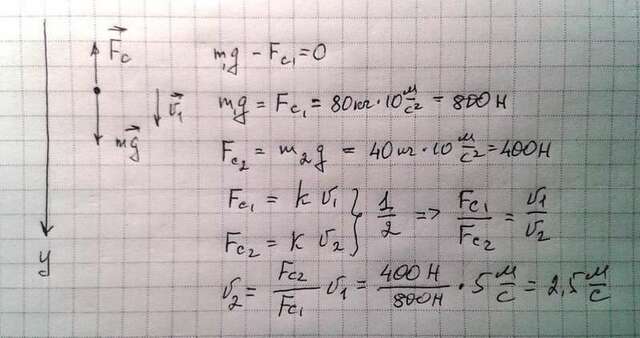 F⃗c
v⃗₁
mg⃗
y
m₁g − Fc₁ = 0
m₁g = Fc₁ = 80кг · 10 м/с² = 800Н
Fc₂ = m₂g = 40кг · 10 м/с² = 400Н
Fc₁ = k v₁
Fc₂ = k v₂ } 1/2 => Fc₁/Fc₂ = v₁/v₂
v₂ = Fc₂/Fc₁ v₁ = 400Н/800Н · 5 м/с = 2,5 м/с